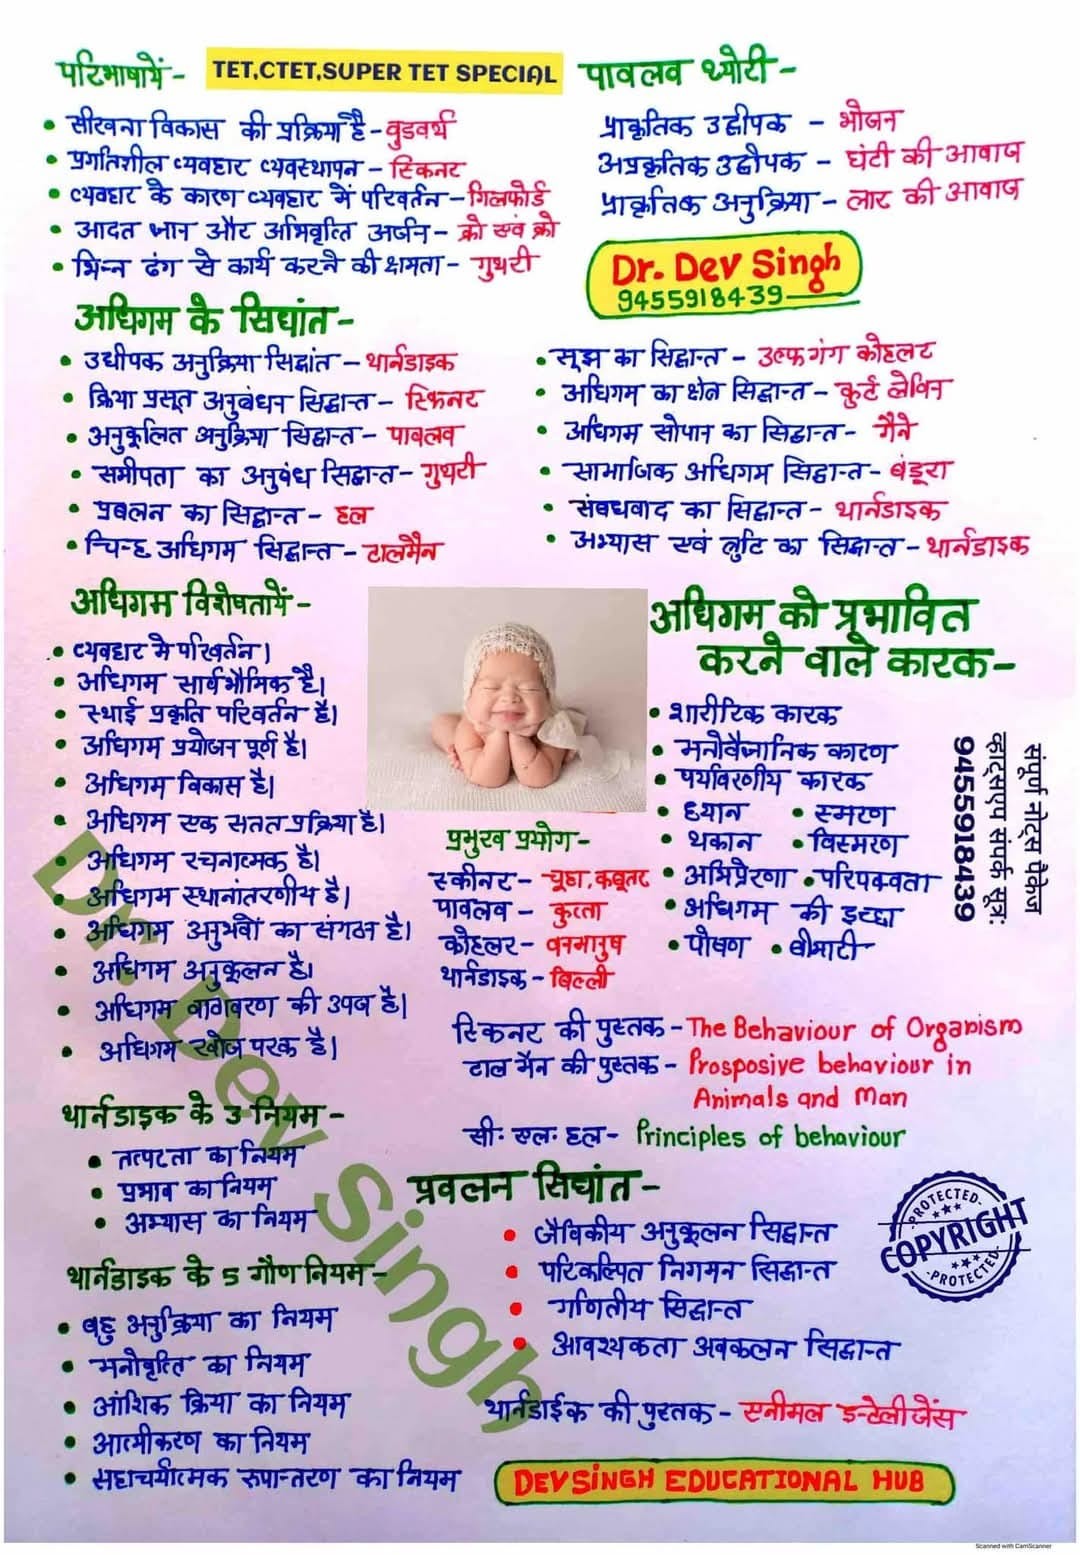 परिभाषायें-
TET,CTET,SUPER TET SPECIAL
• सीखना विकास की प्रक्रिया है - वुडवर्थ
• प्रगतिशील व्यवहार व्यवस्थापन - स्किनर
• व्यवहार के कारण व्यवहार में परिवर्तन - गिलफोर्ड
• आदत ज्ञान और अभिवृत्ति अर्जन - क्रो एवं क्रो
• भिन्न ढंग से कार्य करने की क्षमता - गुथरी
पावलव थ्योरी -
प्राकृतिक उद्दीपक - भोजन
अप्रकृतिक उद्दीपक - घंटी की आवाज
प्राकृतिक अनुक्रिया - लार की आवाज
Dr. Dev Singh
9455918439
अधिगम के सिधांत -
• उधीपक अनुक्रिया सिद्धांत - थार्नडाइक
• क्रिया प्रसूत अनुबंधन सिद्धान्त - स्किनर
• अनुकूलित अनुक्रिया सिद्धान्त - पावलव
• समीपता का अनुबंध सिद्धान्त - गुथरी
• प्रबलन का सिद्धान्त - हल
• चिन्ह अधिगम सिद्धान्त - टालमैन
• सूझ का सिद्धान्त - उल्फगंग कोहलर
• अधिगम का क्षेत्र सिद्धान्त - कुर्ट लेविन
• अधिगम सोपान का सिद्धान्त - गैने
• सामाजिक अधिगम सिद्धान्त - बंडूरा
• संबधवाद का सिद्धान्त - थार्नडाइक
• अभ्यास एवं त्रुटि का सिद्धान्त - थार्नडाइक
अधिगम विशेषतायें -
• व्यवहार मे परिवर्तन।
• अधिगम सार्वभौमिक है।
• स्थाई प्रकृति परिवर्तन है।
• अधिगम प्रयोजन पूर्ण है।
• अधिगम विकास है।
• अधिगम एक सतत प्रक्रिया है।
• अधिगम रचनात्मक है।
• अधिगम स्थानांतरणीय है।
• अधिगम अनुभवों का संगठन है।
• अधिगम अनुकूलन है।
• अधिगम वातावरण की उपज है।
• अधिगम खोज परक है।
अधिगम को प्रभावित
करने वाले कारक -
• शारीरिक कारक
• मनोवैज्ञानिक कारण
• पर्यावरणीय कारक
• ध्यान • स्मरण
• थकान • विस्मरण
• अभिप्रेरणा • परिपक्वता
• अधिगम की इच्छा
• पोषण • बीमारी
संपूर्ण नोट्स पैकेज
व्हाट्सएप संपर्क सूत्र:
9455918439
प्रमुख प्रयोग -
स्कीनर - चूहा, कबूतर
पावलव - कुत्ता
कोहलर - वनमानुष
थार्नडाइक - बिल्ली
स्किनर की पुस्तक - The Behaviour of Organism
टाल मैन की पुस्तक - Prosposive behaviour in
Animals and Man
सी. एल. हल - Principles of behaviour
थार्नडाइक के 3 नियम -
• तत्परता का नियम
• प्रभाव का नियम
• अभ्यास का नियम
थार्नडाइक के 5 गौण नियम -
• बहु अनुक्रिया का नियम
• मनोवृत्ति का नियम
• आंशिक क्रिया का नियम
• आत्मीकरण का नियम
• सहाचर्यात्मक रूपान्तरण का नियम
प्रवलन सिधांत -
• जैविकीय अनुकूलन सिद्धान्त
• परिकल्पित निगमन सिद्धान्त
• गणितीय सिद्धान्त
• आवश्यकता अवकलन सिद्धान्त
थार्नडाईक की पुस्तक - एनीमल इन्टेलीजेंस
PROTECTED
COPYRIGHT
PROTECTED
DEVSINGH EDUCATIONAL HUB
Dr. Dev Singh
Scanned with CamScanner